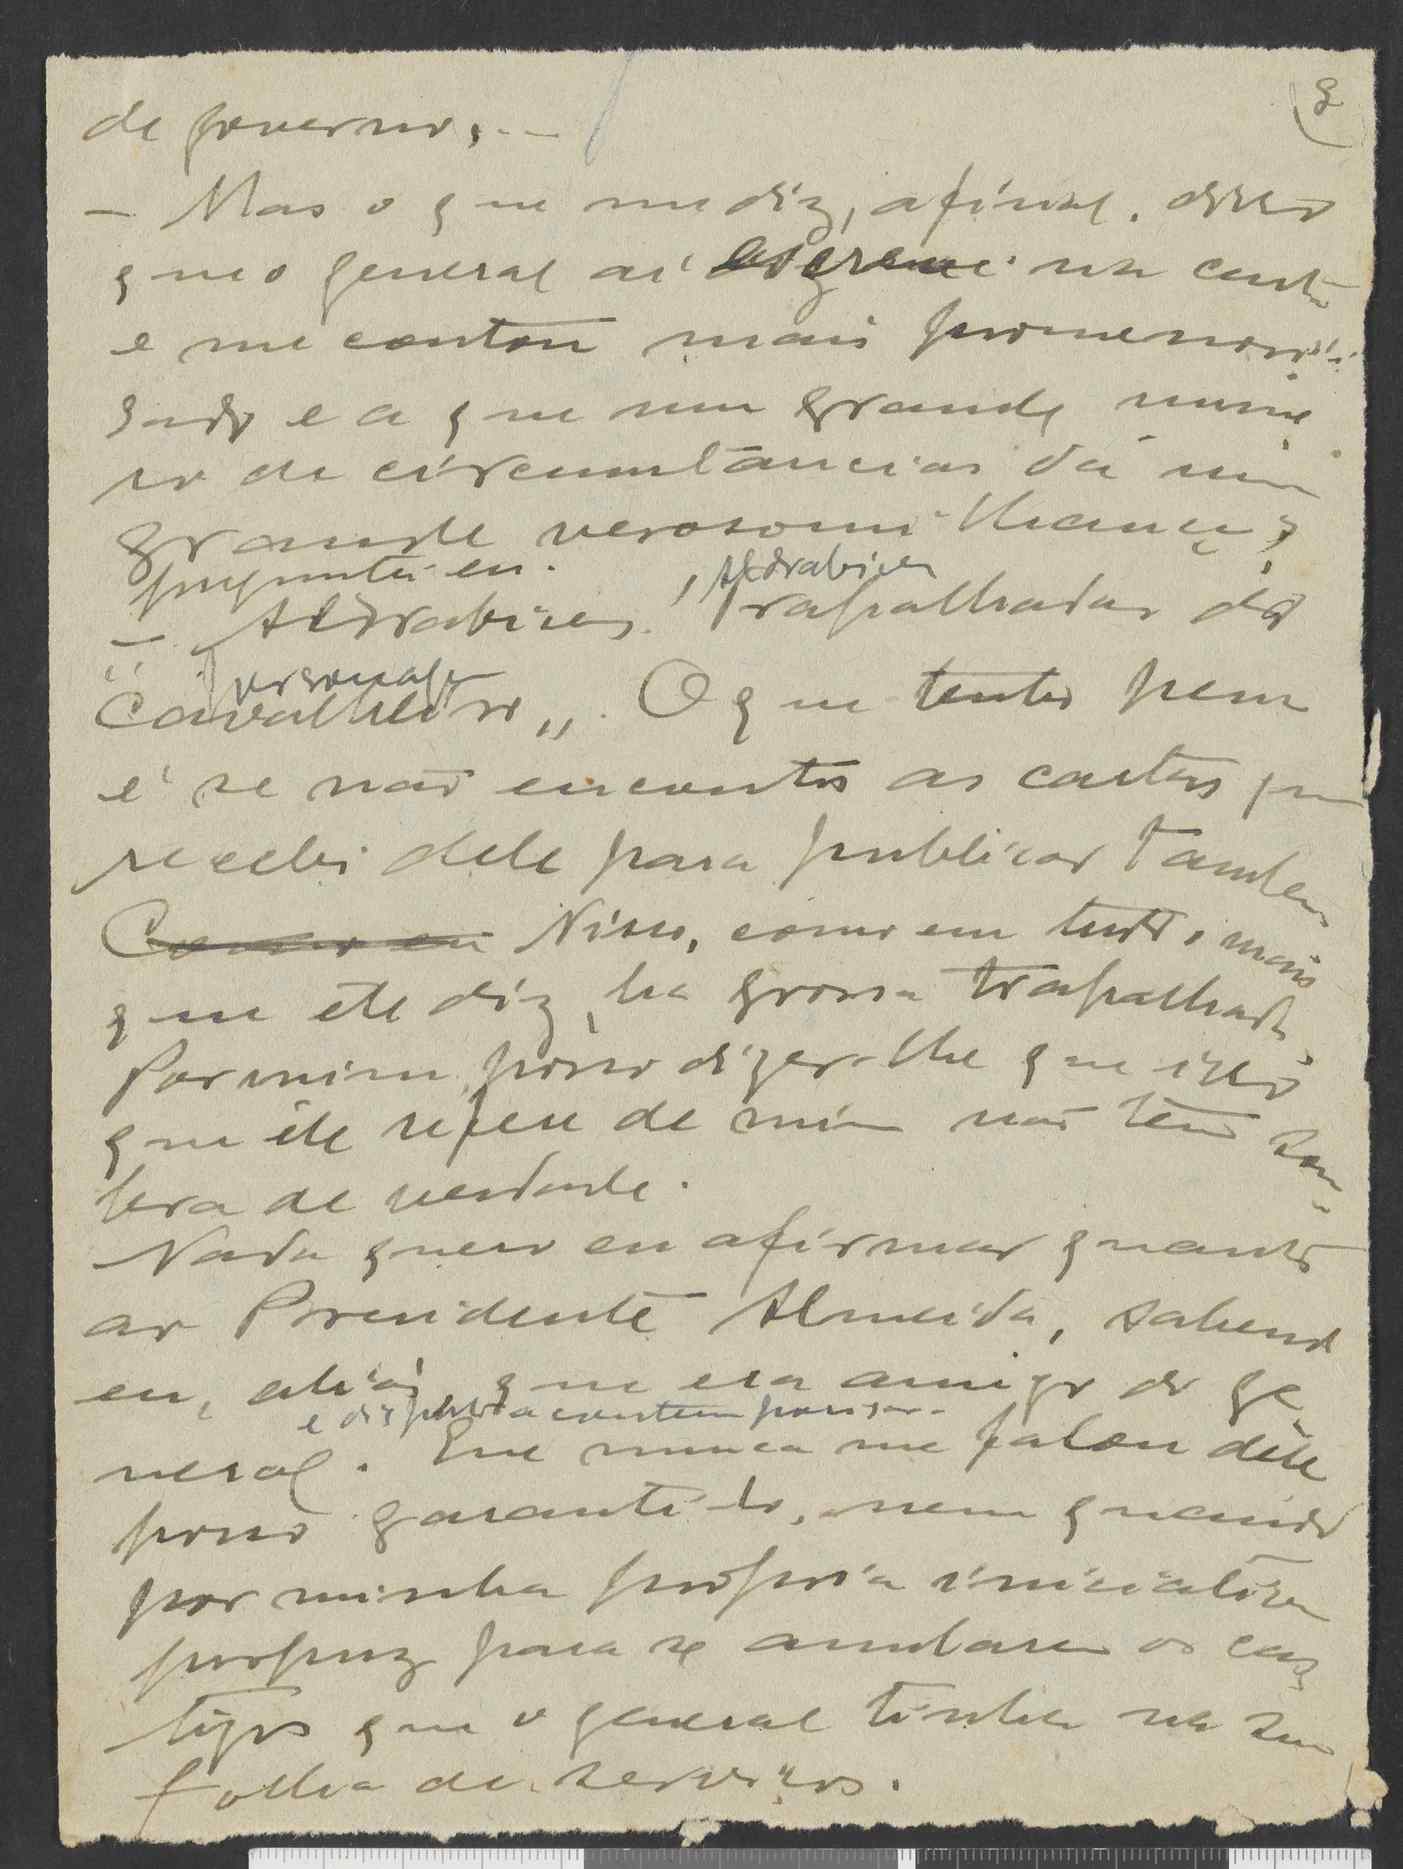 9
de governo...
— Mas o que me diz, afinal, disso
que o general aí escreve na carta
e me contou mais pormenori-
sado e a que um grande nume
ro de circumstancias dá uma
grande verosomilhança,
preguntei eu.
— Aldrabices. , Aldrabices Trapalhadas do
personagem
"Cavalheiro". O que tenho pena
é se não encontro as cartas que
recebi dele para publicar tambem
Como eu Nisso, como em tudo o mais
que ele diz, ha grossa trapalhada.
Por mim, posso dizer-lhe que isso
que êle refere de mim não tem som-
bra de verdade.
Nada quero eu afirmar quanto
ao Presidente Almeida, sabendo
eu, aliás, que era amigo do ge-
e disposto a contemporisar.
neral. Ene nunca me falou dêle
posso garanti-lo, nem quando
por minha propria iniciativa
propuz para se anularem os cas
tigos que o general tinha na sua
folha de serviços.